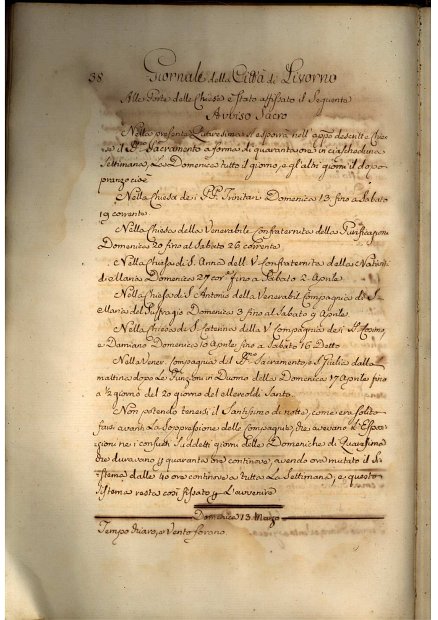 38 Giornale della Città di Livorno
Alle Porte delle Chiese è stato affissato il Seguente
Avviso Sacro
Nella presente Quaresima si esporrà nell' appo descritte Chie
se il SSmo Sacramento a forma di quarantaore in ciascheduna
Settimana, La Domenica tutto il giorno, e gl'altri giorni il dopo
pranzo cioè
Nella Chiesa de i PP. Trinitari Domenica 13 fino a Sabato
19 corrente
Nella Chiesa della Venerabile Confraternita della Purificazione
Domenica 20 fino al Sabato 26 corrente
Nella Chiesa di S. Anna dell V. Confraternita della Natività
di Maria Domenica 27 corte fino a Sabato 2 Aprile
Nella Chiesa di S. Antonio della Venerabil Compagnia di S.
Maria del Suffragio Domenica 3 fino al Sabato 9 Aprile
Nella Chiesa di S. Caterina della V. Compagnia de i SS. Cosimo,
e Damiano Domenica 10 Aprile fino a Sabato 16 Detto
Nella Vener. Compagnia del SSmo Sacramento, e S. Giulia dalla
mattina dopo le Funzioni in Duomo della Domenica 17 Aprile fino
a ½ giorno del 20 giorno del Mercoldì Santo
Non potendo tenersi il Santissimo di notte, come era solito
farsi avanti La Soppressione delle Compagnie, che avevano l'Espo
sizione ne i consueti Suddetti giorni delle Domeniche di Quaresima
che duravano quaranta ore continove, avendo ora mutato il Si
stema dalle 40 ore continove a tutta La Settimana, e questo
Sistema resta così fissato L'avvenire
Domenica 13 Marzo
Tempo chiaro, e Vento forano